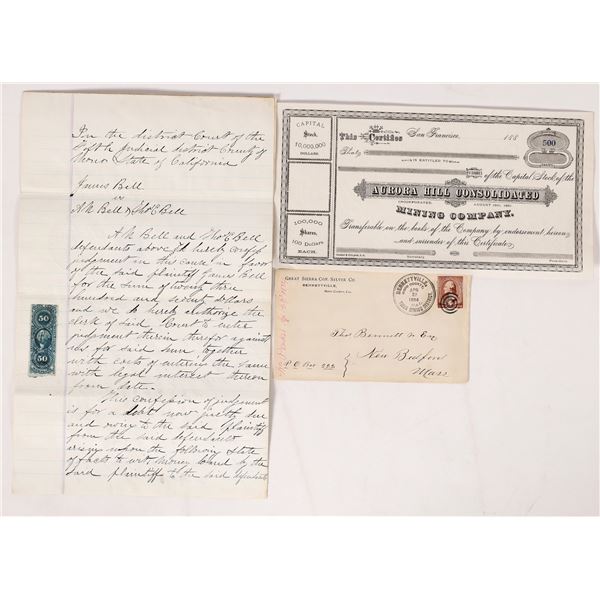 In the district Court of the
Judicial district County of
Mono State of California
James Bell
vs
A N Bell & Tho E Bell
A N Bell and Tho E Bell
defendants above do hereby confess
judgment in this cause in favor
of the said plaintiff James Bell
for the sum of twenty three
hundred and seventy dollars
and we do hereby authorize the
clerk of said Court to enter
judgment therein therefor against
us for said sum together
with costs of entering the same
with legal interest thereon
from date.
This confession of judgment
is for a debt now justly due
and owing to the said plaintiff
from the said defendants
arising upon the following state
of facts to wit money loaned by the
said plaintiff to the said defendants
50 50
CAPITAL
Stock,
10,000,000
DOLLARS.
100,000
Shares,
100 Dollars
EACH.
This Certifies San Francisco, 188
That
IS ENTITLED TO
500
SHARES of the Capital Stock of the
AURORA HILL CONSOLIDATED
INCORPORATED AUGUST 1881
MINING COMPANY.
Transferable on the books of the Company by endorsement hereon
and surrender of this Certificate.
GREAT SIERRA CON. SILVER CO.
BENNETTVILLE,
MONO COUNTY, CAL.
BENNETTVILLE,
APR
1884
Thos. Bennett Jr Esq.
New Bedford
Mass
P O Box 222